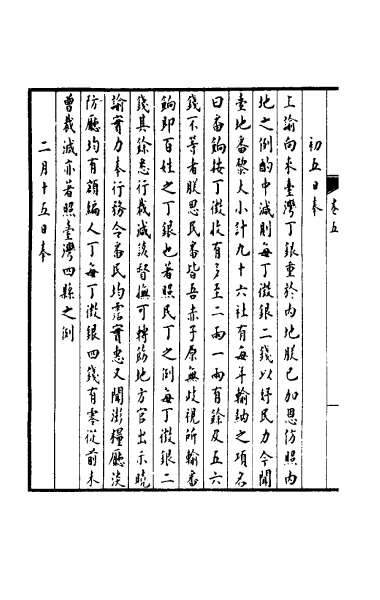 卷五
初五日奉
上諭向來臺灣丁銀重於內地朕已加恩仿照內
地之例酌中減則每丁徵銀二錢以紓民力今聞
臺地番黎大小計九十六社有每年輸納之項名
曰番餉按丁徵收有多至二兩一兩有餘及五六
錢不等者朕思民番皆吾赤子原無歧視所輸番
餉即百姓之丁銀也著照民丁之例每丁徵銀二
錢其餘悉行裁減該督撫可轉飭地方官出示曉
諭實力奉行務令番民均霑實惠又聞澎糧廳淡
防廳均有額編人丁每丁徵銀四錢有零從前未
曾裁減亦著照臺灣四縣之例
二月十五日奉